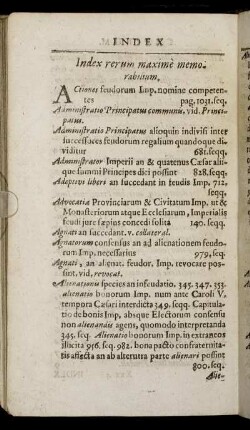 INDEX
Index rerum maximè memo-
rabilium.
ACtiones feudorum Imp. nomine competen-
tes pag. 1031. seq.
Administratio Principatus communis. vid. Princi-
patus.
Administratio Principatus alioquin indivisi inter
successores feudorum regalium quandoque di-
viditur 681. seqq.
Administrator Imperii an & quatenus Cæsar ali-
que summi Principes dici possint 828. seqq.
Adoptivi liberi an succedant in feudis Imp. 712.
seqq.
Advocatia Provinciarum & Civitatum Imp. ut &
Monasteriorum atque Ecclesiarum, Imperialis
feudi jure sæpius concedi solita 140. seqq.
Agnati an succedant. v. collateral.
Agnatorum consensus an ad alienationem feudo-
rum Imp. necessarius 979. seq.
Agnati, an alienat. feudor. Imp. revocare pos-
sint. vid. revocat.
Alienationis species an infeudatio. 345. 347. 353.
alienatio bonorum Imp. num ante Caroli V.
tempora Cæsari interdicta 349. seqq. Capitula-
tio de bonis Imp. absque Electorum consensu
non alienandis agens, quomodo interpretanda
345. seq. Alienatio bonorum Imp. in extraneos
illicita 956. seq. 982. bona pacto confraternita-
tis affecta an ab alterutra parte alienari possint
800. seq.
Alie-